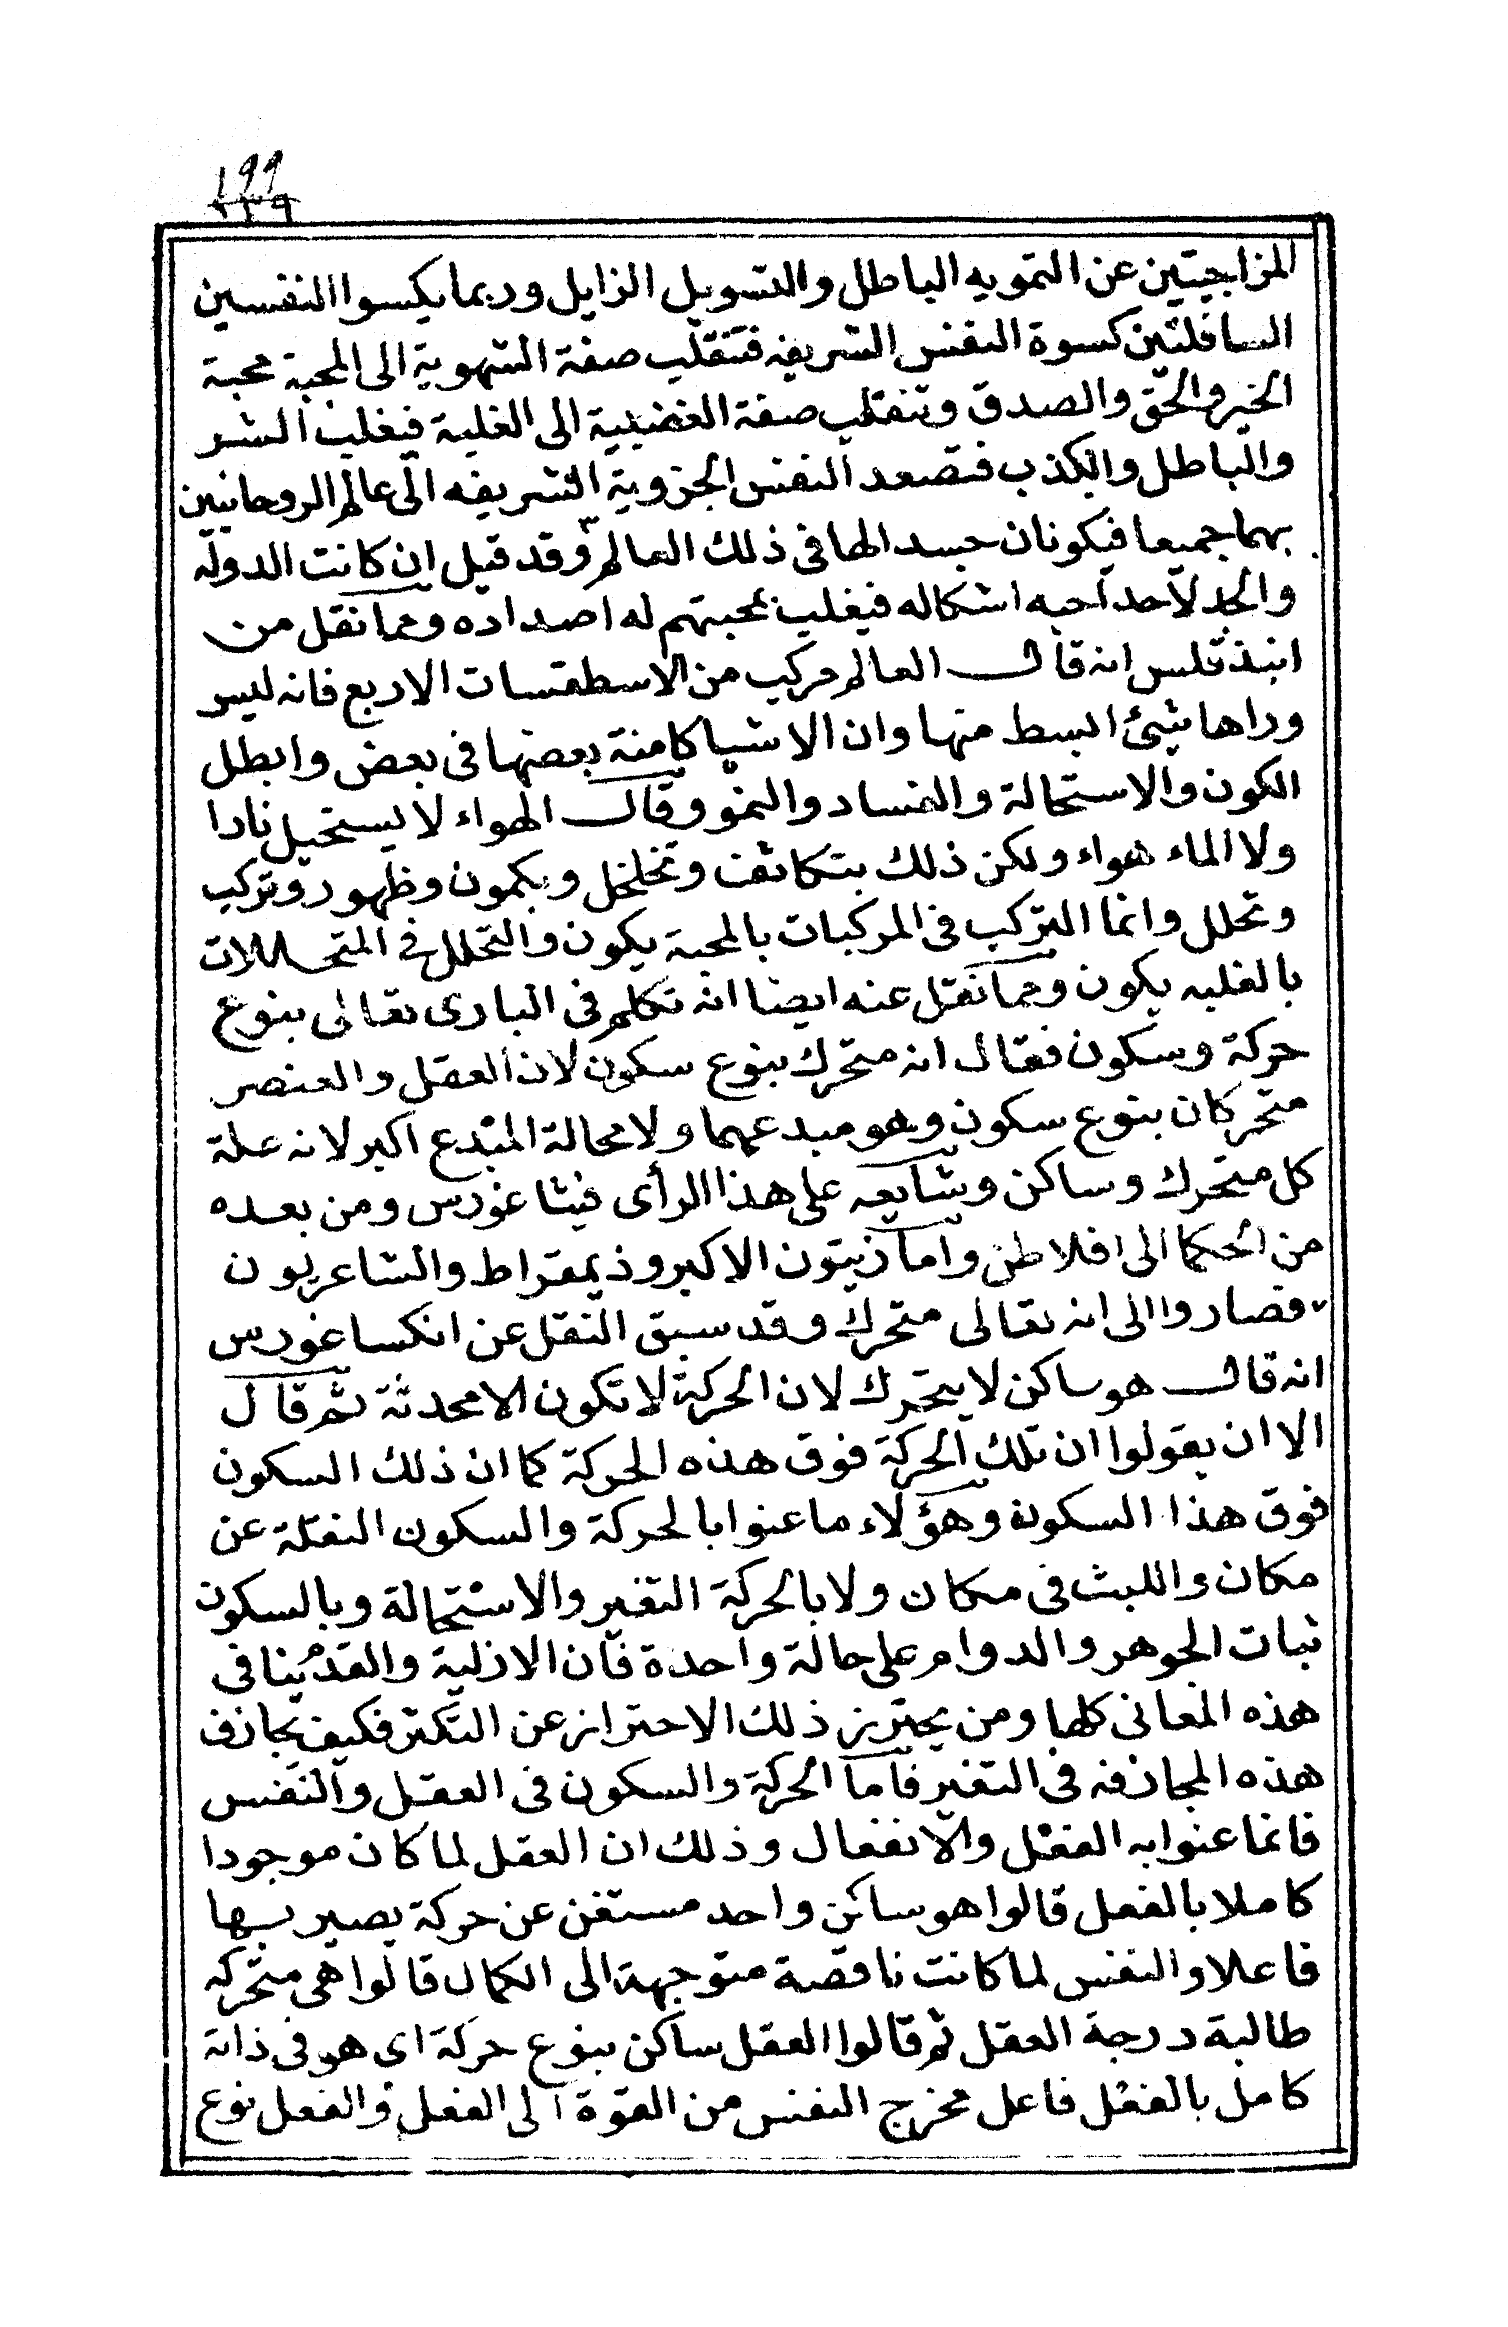 ١٩٩
المزاجيتين عن التمويه الباطل والتسويل الزايل وربما يكسوا النفسين
السافلتين كسوة النفس الشريفه فتنقلب صفة الشهوية الى المحبة محبة
الخير والحق والصدق وتنقلب صفة الغضبية الى الغلبة فيغلب الشر
والباطل والكذب فتصعد النفس الجزوية الشريفه الى عالم الروحانيين
بهما جميعا فيكونان جسد الها فى ذلك العالم وقد قيل ان كانت الدولة
والجد لاحد احبه اشكاله فيغلب بمحبتهم له اضداده ومما نقل من
انبذقلس انه قال العالم مركب من الاسطقسات الاربع فانه ليس
وراها شيئ ابسط منها وان الاشيا كامنة بعضها فى بعض وابطل
الكون والاستحالة والفساد والنمو وقال الهواء لا يستحيل نارا
ولا الماء هواء ولكن ذلك بتكاثف وتخلخل وبكمون وظهور وتركب
وتحلل وانما التركب فى المركبات بالمحبة يكون والتحلل فى المتحللات
بالغلبه يكون ومما نقل عنه ايضا انه تكلم فى البارى تعالى بنوع
حركة وسكون فقال انه متحرك بنوع سكون لان العقل والعنصر
متحركان بنوع سكون وهو مبدعهما ولا محالة المبدع اكبر لانه علة
كل متحرك وساكن وشايعه على هذا الرأى فيثاغورس ومن بعده
من الحكما الى افلاطن واما زيتون الاكبر وذيمقراط والشاعريون
فصاروا الى انه تعالى متحرك وقد سبق النقل عن انكساغورس
انه قال هو ساكن لا يتحرك لان الحركة لا تكون الا محدثة ثم قال
الا ان يقولوا ان تلك الحركة فوق هذه الحركة كما ان ذلك السكون
فوق هذا السكون وهؤلاء ما عنوا بالحركة والسكون النقلة عن
مكان واللبث فى مكان ولا بالحركة التغير والاستحالة وبالسكون
ثبات الجوهر والدوام على حالة واحدة فان الازلية والقدم ينافى
هذه المعانى كلها ومن يحترز ذلك الاحتراز عن التكثر فكيف يجازف
هذه المجازفه فى التغير فاما الحركة والسكون فى العقل والنفس
فانما عنوا به الفعل والانفعال وذلك ان العقل لما كان موجودا
كاملا بالفعل قالوا هو ساكن واحد مستغن عن حركة يصير بها
فاعلا والنفس لما كانت ناقصة متوجهة الى الكمال قالوا هى متحركه
طالبة درجة العقل ثم قالوا العقل ساكن بنوع حركة اى هو فى ذاته
كامل بالفعل فاعل مخرج النفس من القوة الى الفعل والفعل نوع